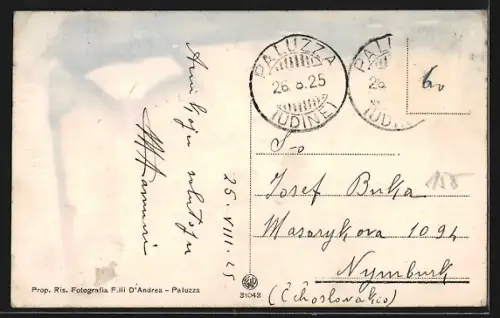 PALUZZA
26.8.25
(UDINE)
PALU
26.
(UDINE
60
Amikajn salutojn
25.VIII.25
S-o
Josef Buka
155
Masarykova 1094
Nymburk
(Ĉeĥoslovakio)
Prop. Ris. Fotografia F.lli D'Andrea - Paluzza
31043